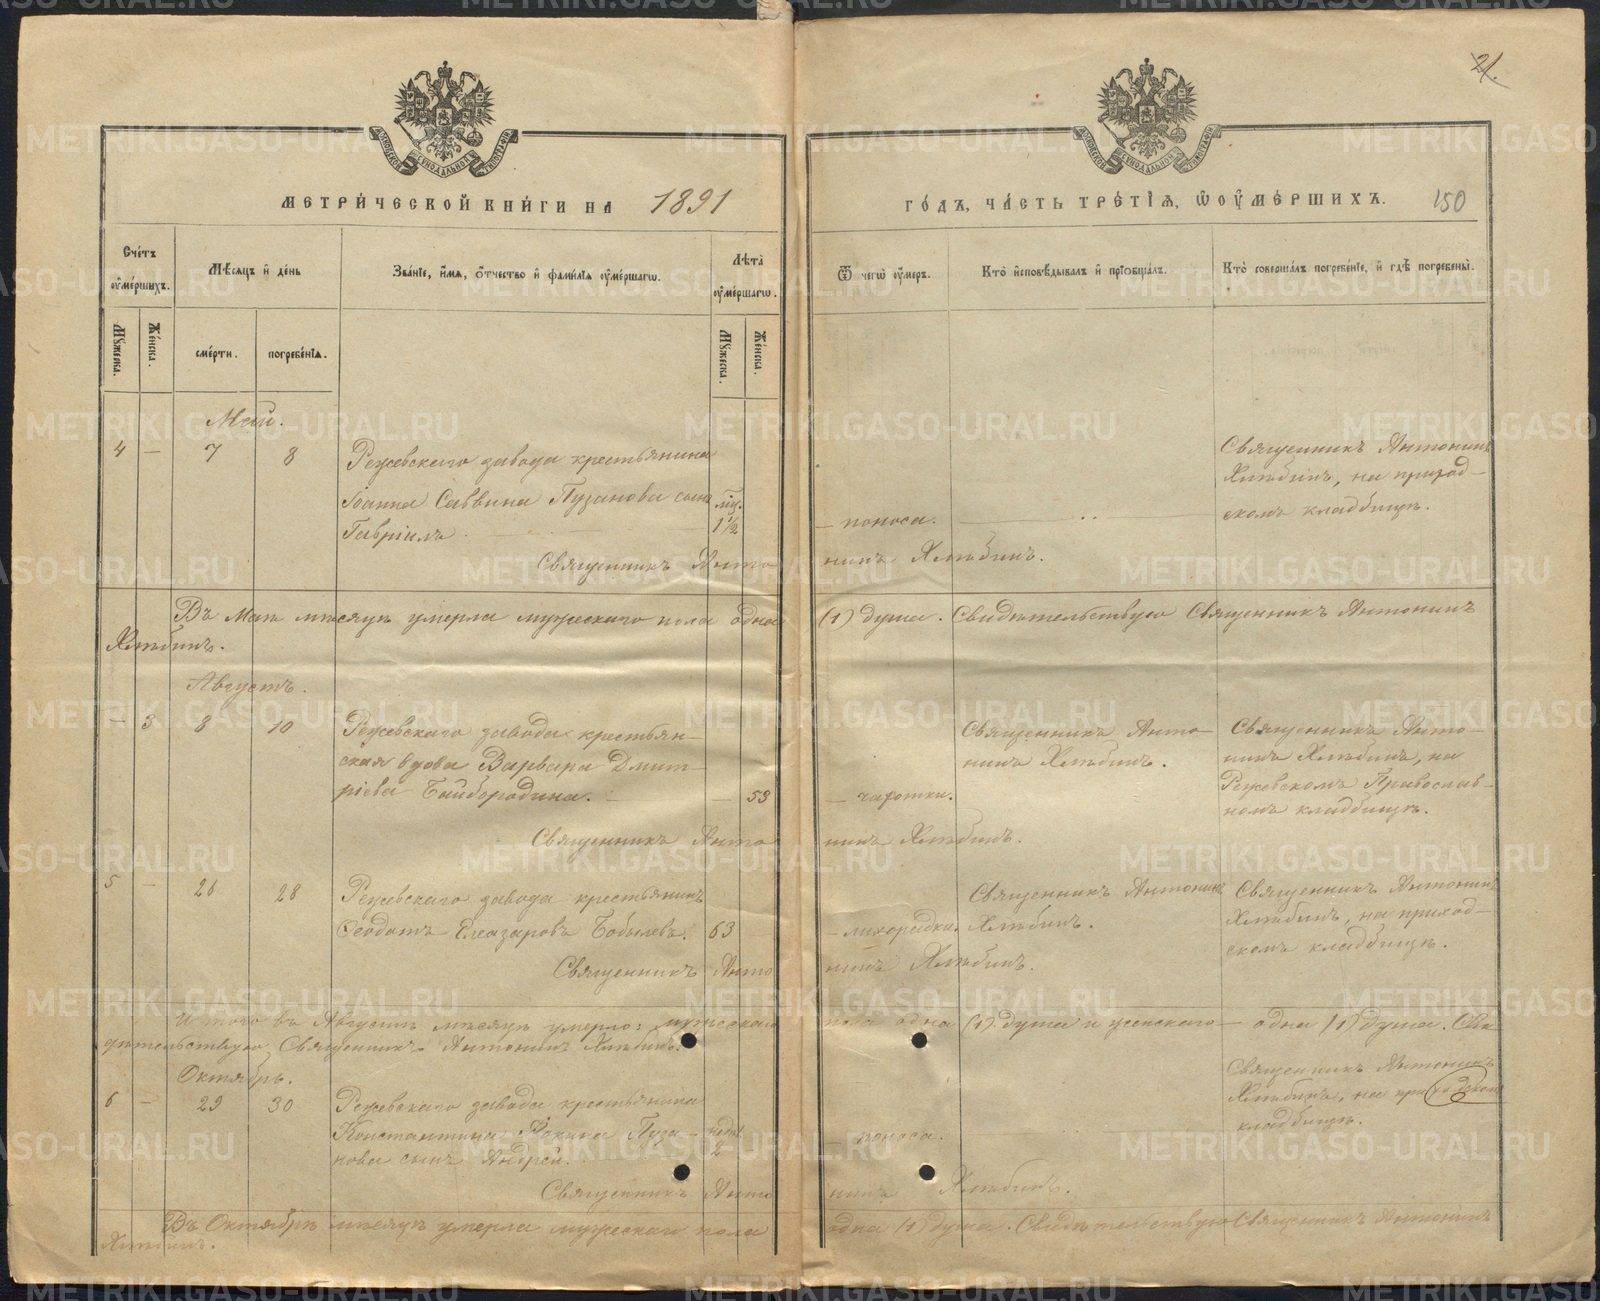 21.
МЕТРИ́ЧЕСКОЙ КНИ́ГИ НА 1891
ГО́ДЪ, ЧА́СТЬ ТРЕ́ТІѦ, Ѡ҆ОУ҆МЕ́РШИХЪ. 150
Сче́тъ оу҆ме́ршихъ.
Мѣ́сяцъ и҆ де́нь
Зва́ніе, и҆́мя, ѻ҆́тчество и҆ фами́лія оу҆ме́ршагѡ.
Лѣта̀ оу҆ме́ршагѡ.
Ѿ чегѡ̀ оу҆́меръ.
Кто̀ и҆сповѣ́дывалъ и҆ пріобща́лъ.
Кто̀ соверша́лъ погребе́ніе, и҆ гдѣ̀ погребены̀.
Мꙋ́жеска.
Же́нска.
сме́рти.
погребе́нія.
Мꙋ́жеска.
Же́нска.
Май.
4 — 7 8 Режевскаго завода крестьянина
Іоанна Саввина Пузанова сынъ
Гавріилъ. 1½ — поноса.
Священникъ Антонинъ
Хлѣбинъ, на приход-
скомъ кладбищѣ.
Священникъ Антонинъ Хлѣбинъ.
Въ Маѣ мѣсяцѣ умерла мужескаго пола одна (1) душа. Свидѣтельствую Священникъ Антонинъ
Хлѣбинъ.
Августъ.
— 3 8 10 Режевскаго завода крестьян-
ская вдова Варвара Дмит-
ріева Байбородина. — — 53 — чахотки.
Священникъ Анто-
нинъ Хлѣбинъ.
Священникъ Анто-
нинъ Хлѣбинъ, на
Режевскомъ Православ-
номъ кладбищѣ.
Священникъ Антонинъ Хлѣбинъ.
5 — 26 28 Режевскаго завода крестьянинъ
Ѳеодотъ Елеазаровъ Бобылевъ. 63 — лихорадки.
Священникъ Антонинъ
Хлѣбинъ.
Священникъ Антонинъ
Хлѣбинъ, на приход-
скомъ кладбищѣ.
Священникъ Антонинъ Хлѣбинъ.
Итого въ Августѣ мѣсяцѣ умерло: мужескаго пола одна (1) душа и женскаго — одна (1) душа. Сви-
дѣтельствую Священникъ Антонинъ Хлѣбинъ.
Октябрь.
6 — 29 30 Режевскаго завода крестьянина
Константина Пуза-
нова сынъ Андрей. 2 поноса.
Священникъ Антонинъ
Хлѣбинъ, на приходскомъ
кладбищѣ.
Священникъ Антонинъ Хлѣбинъ.
Въ Октябрѣ мѣсяцѣ умерла мужескаго пола одна (1) душа. Свидѣтельствую Священникъ Антонинъ
Хлѣбинъ.
METRIKI.GASO-URAL.RU